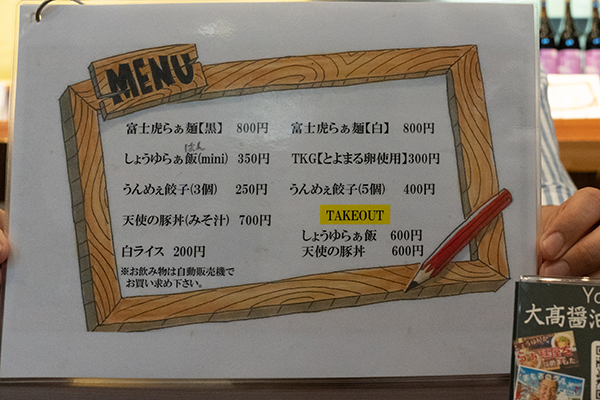 MENU
富士虎らぁ麺【黒】 800円
富士虎らぁ麺【白】 800円
はん
しょうゆらぁ飯(mini) 350円
TKG【とよまる卵使用】300円
うんめぇ餃子(3個) 250円
うんめぇ餃子(5個) 400円
天使の豚丼(みそ汁) 700円
TAKEOUT
しょうゆらぁ飯 600円
天使の豚丼 600円
白ライス 200円
※お飲み物は自動販売機で
お買い求め下さい。
大髙醤油